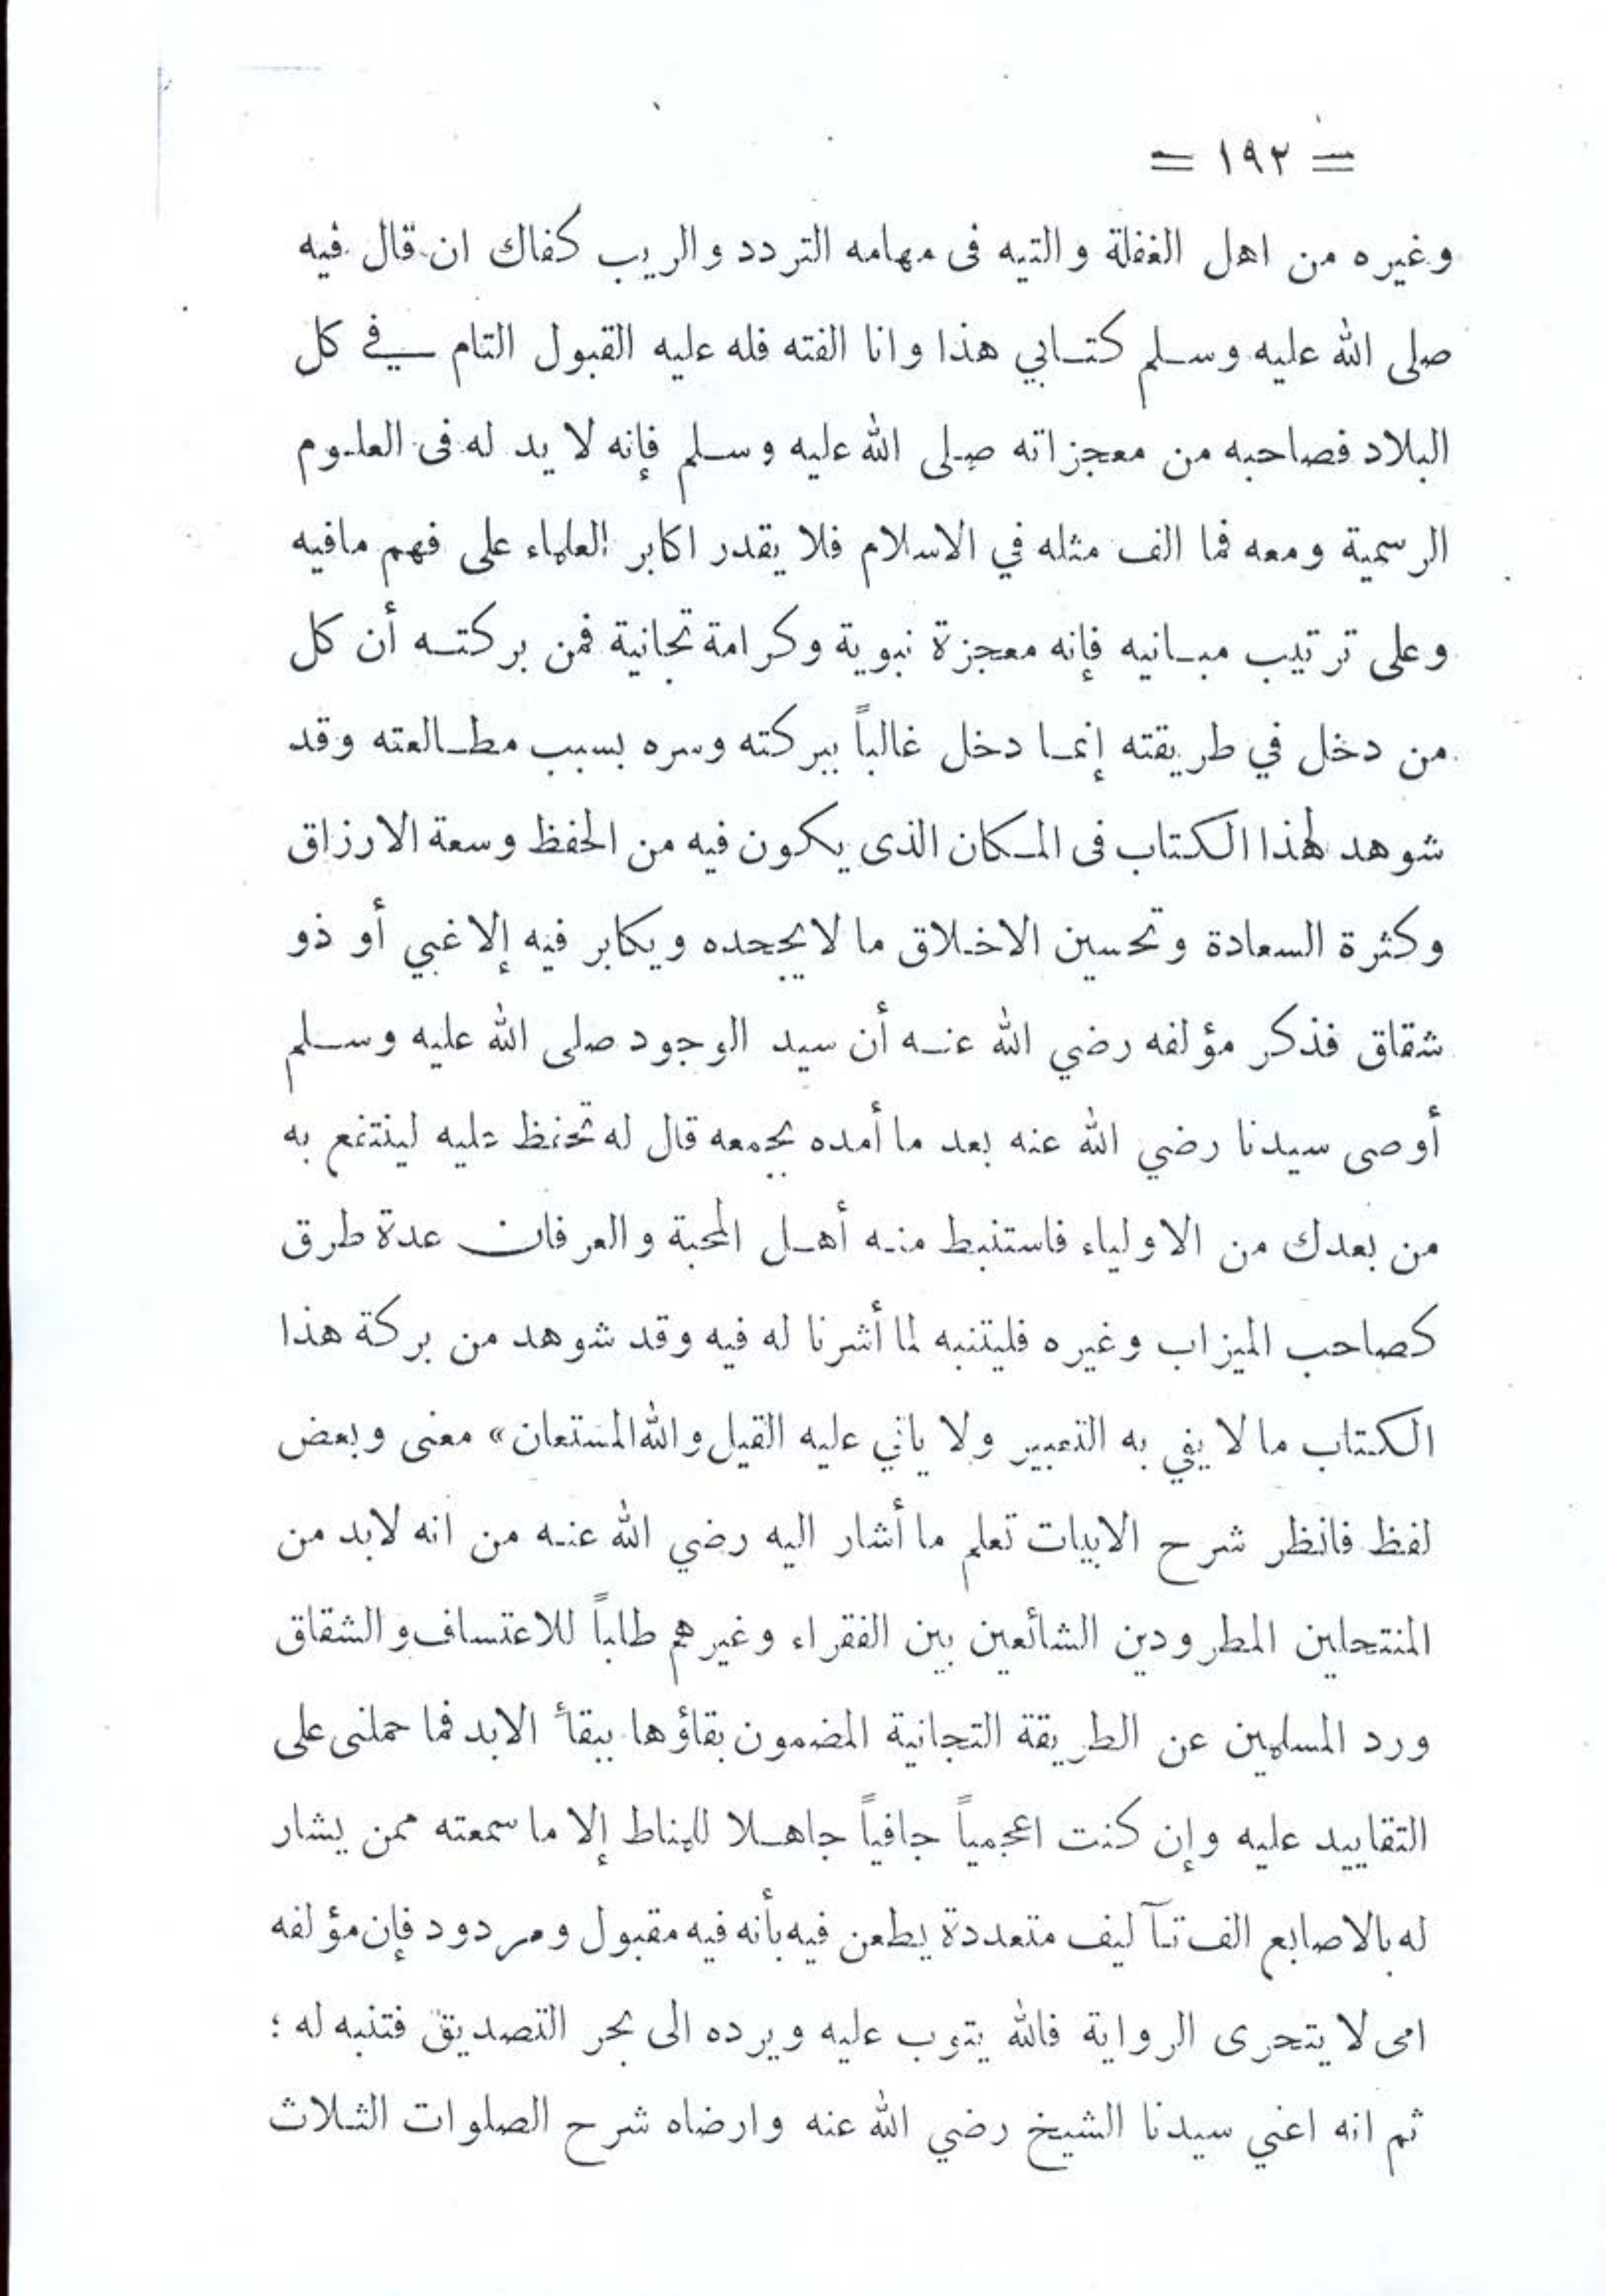 = ١٩٢ =
وغيره من اهل الغفلة والتيه فى مهامه التردد والريب كفاك ان قال فيه
صلى الله عليه وسلم كتابي هذا وانا الفته فله عليه القبول التام في كل
البلاد فصاحبه من معجزاته صلى الله عليه وسلم فإنه لا يد له فى العلوم
الرسمية ومعه فما الف مثله في الاسلام فلا يقدر اكابر العلماء على فهم مافيه
وعلى ترتيب مبانيه فإنه معجزة نبوية وكرامة تجانية فمن بركته أن كل
من دخل في طريقته إنما دخل غالباً ببركته وسره بسبب مطالعته وقد
شوهد لهذا الكتاب فى المكان الذى يكون فيه من الحفظ وسعة الارزاق
وكثرة السعادة وتحسين الاخلاق ما لا يجحده ويكابر فيه إلا غبي أو ذو
شقاق فذكر مؤلفه رضي الله عنه أن سيد الوجود صلى الله عليه وسلم
أوصى سيدنا رضي الله عنه بعد ما أمده بجمعه قال له تحفظ عليه لينتفع به
من بعدك من الاولياء فاستنبط منه أهل المحبة والعرفان عدة طرق
كصاحب الميزاب وغيره فليتنبه لما أشرنا له فيه وقد شوهد من بركة هذا
الكتاب ما لا يفي به التعبير ولا ياتي عليه القيل والله المستعان» معنى وبعض
لفظ فانظر شرح الابيات تعلم ما أشار اليه رضي الله عنه من انه لابد من
المنتحلين المطرودين الشائعين بين الفقراء وغيرهم طلباً للاعتساف والشقاق
ورد المسلمين عن الطريقة التجانية المضمون بقاؤها ببقأ الابد فما حملنى على
التقاييد عليه وإن كنت اعجمياً جافياً جاهلا للمناط إلا ما سمعته ممن يشار
له بالاصابع الف تآليف متعددة يطعن فيه بأنه فيه مقبول ومردود فإن مؤلفه
امى لا يتحرى الرواية فالله يتوب عليه ويرده الى بحر التصديق فتنبه له ؛
ثم انه اعني سيدنا الشيخ رضي الله عنه وارضاه شرح الصلوات الثلاث